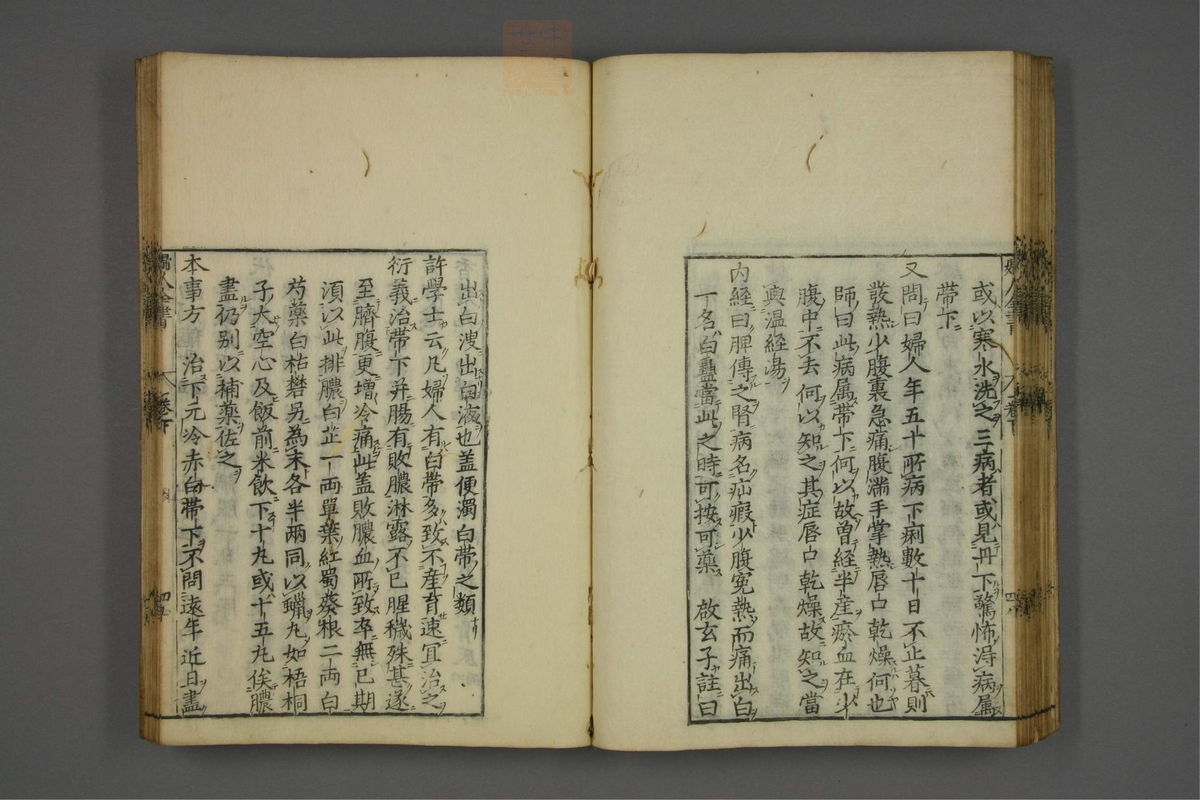 或以寒水洗之三病者或見丹下驚怖得病属
帶下
又問曰婦人年五十所病下痢數十日不止暮則
發熱少腹裏急痛腹満手掌熱唇口乾燥何也
師曰此病属帶下何以故曽経半産瘀血在少
腹中不去何以知之其症唇口乾燥故知之當
與温経湯
内経曰脾傳之腎病名疝瘕少腹寃熱而痛出白
一名白蠱當此之時可按可藥 啟玄子註曰
出白溲出白液也蓋便濁白帶之類
許學士云凡婦人有白帶多致不産育速冝治之
衍義治帶下并腸有敗膿淋露不已腥穢殊甚遂
至臍腹更増冷痛此蓋敗膿血所致卒無已期
湏以此排膿白芷一両單葉紅蜀葵根二両白
芍藥白枯礬另為末各半兩同以蠟丸如梧桐
子大空心及飯前米飲下十丸或十五丸俟膿
盡仍別以補藥佐之
本事方 治下元冷赤白帶下不問遠年近日盡